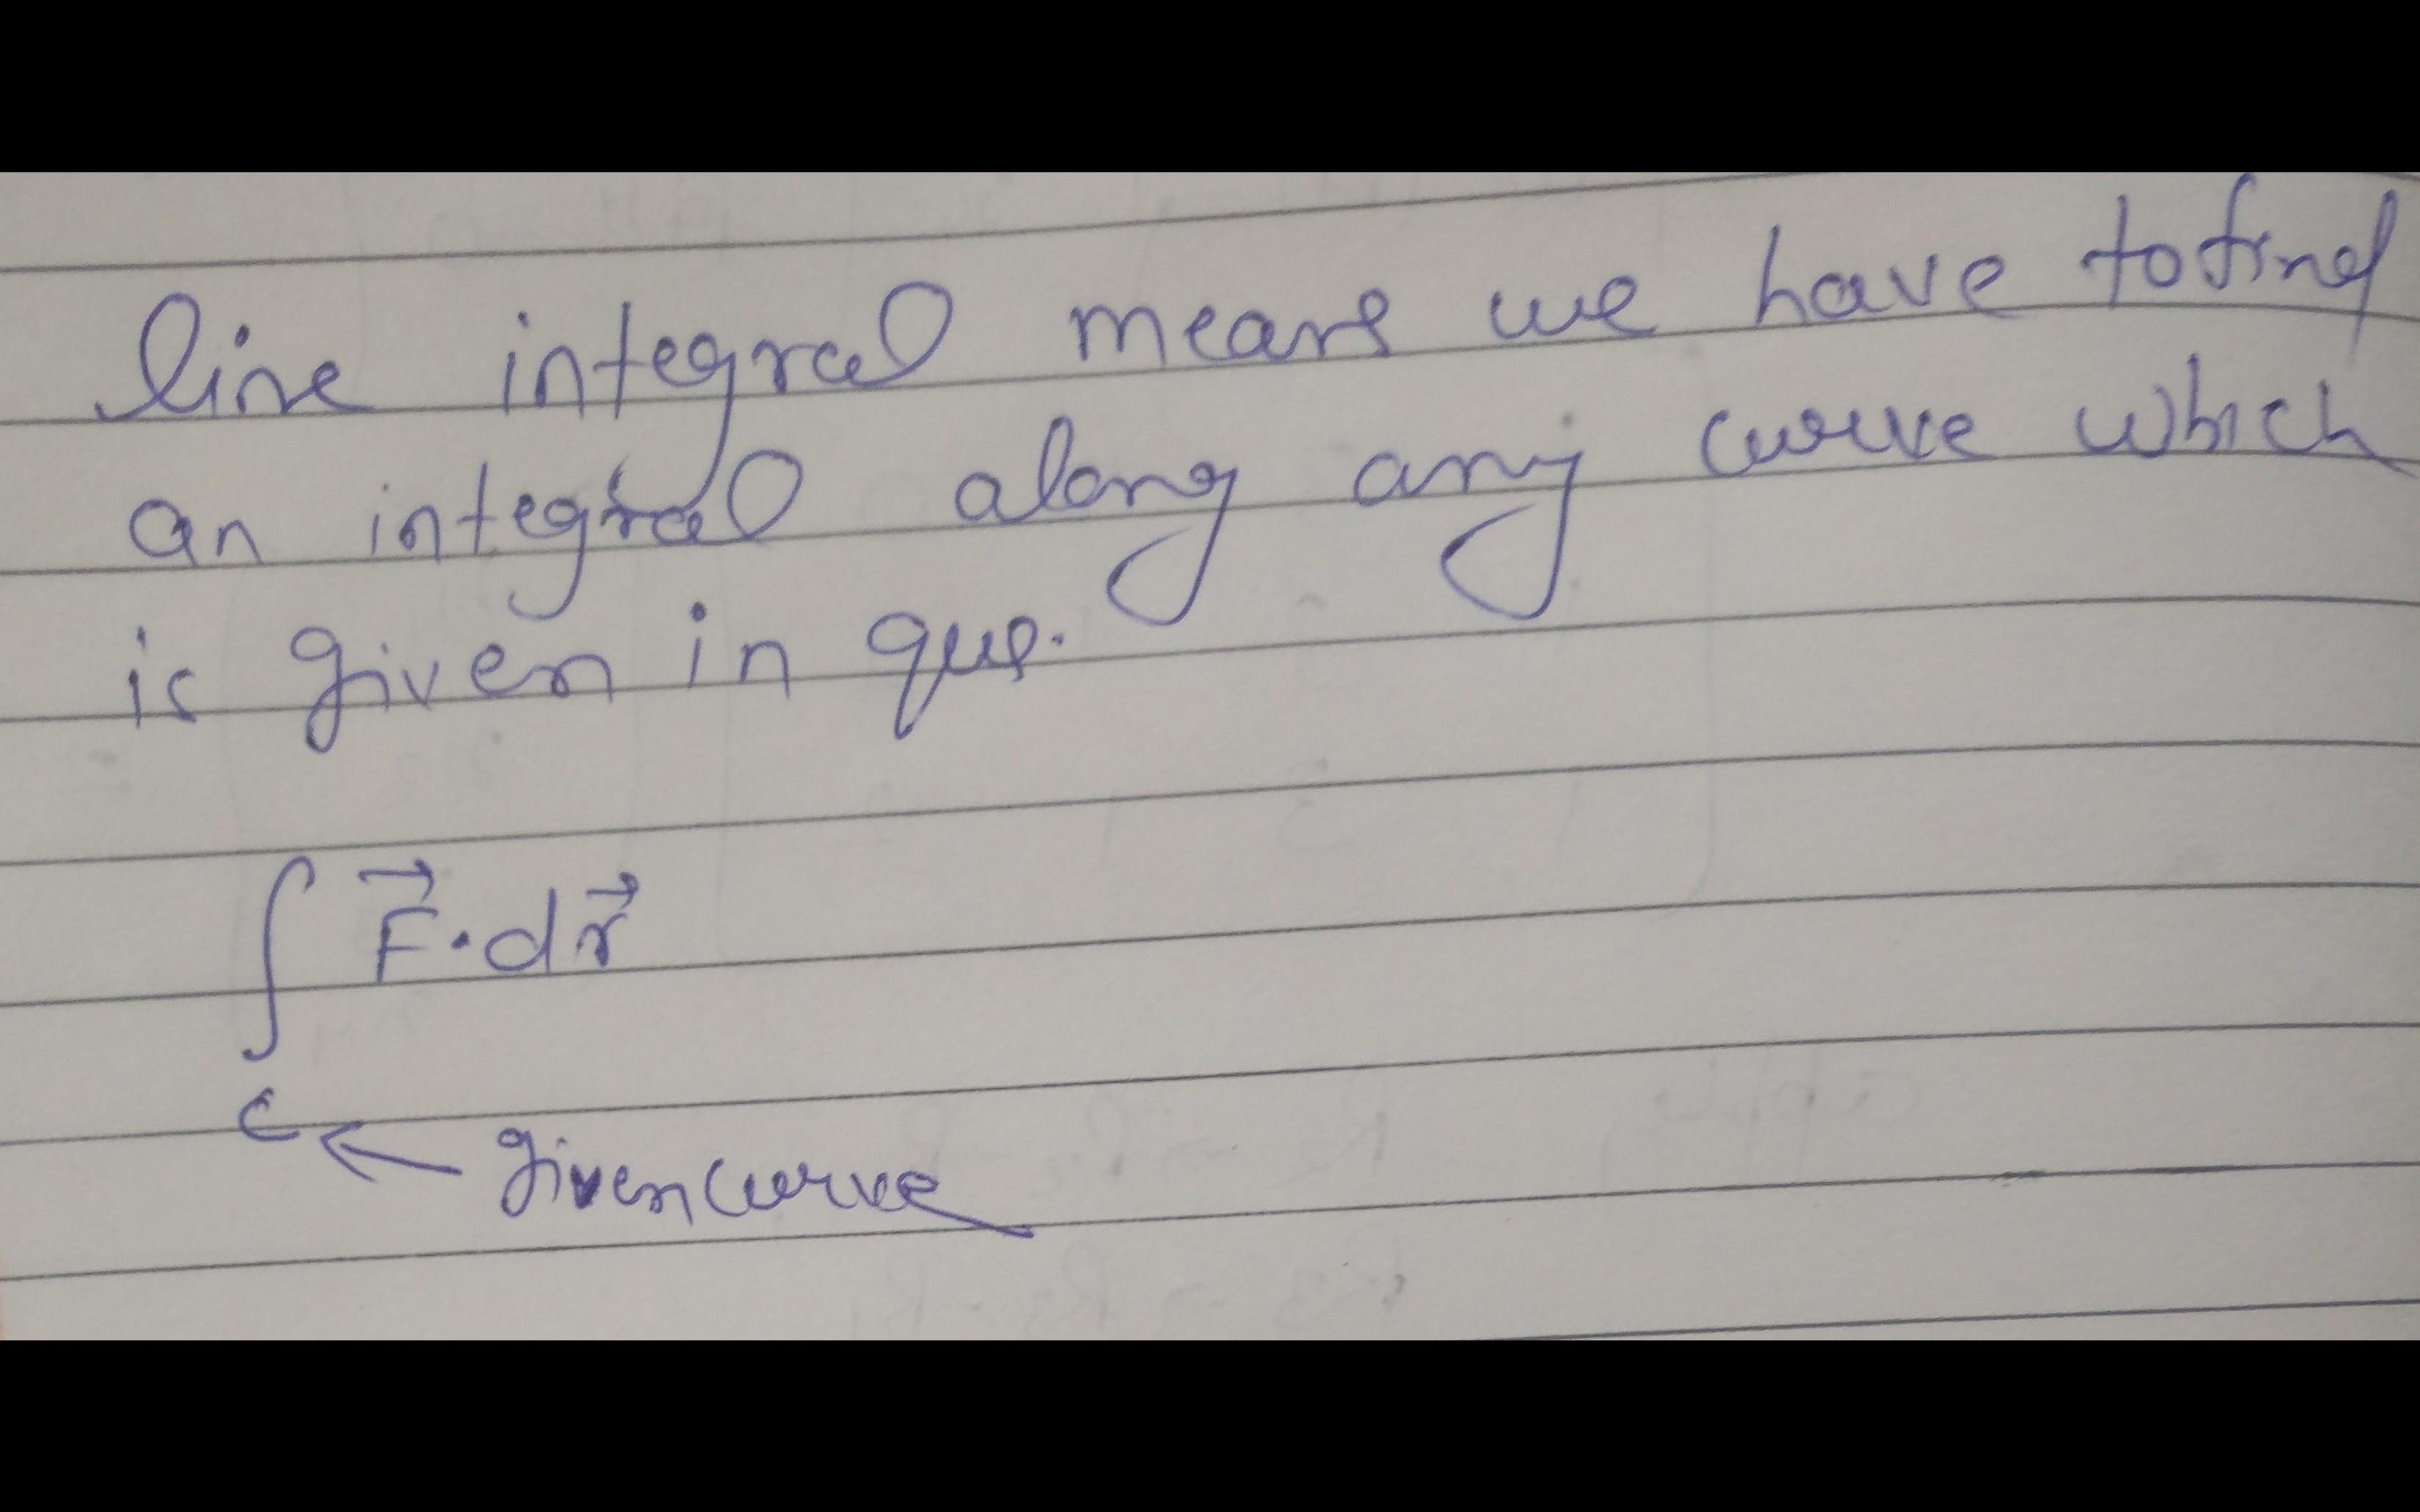 line integral means we have to find
an integral along any curve which
is given in que.
∫ F⃗·dr⃗
c ← given curve